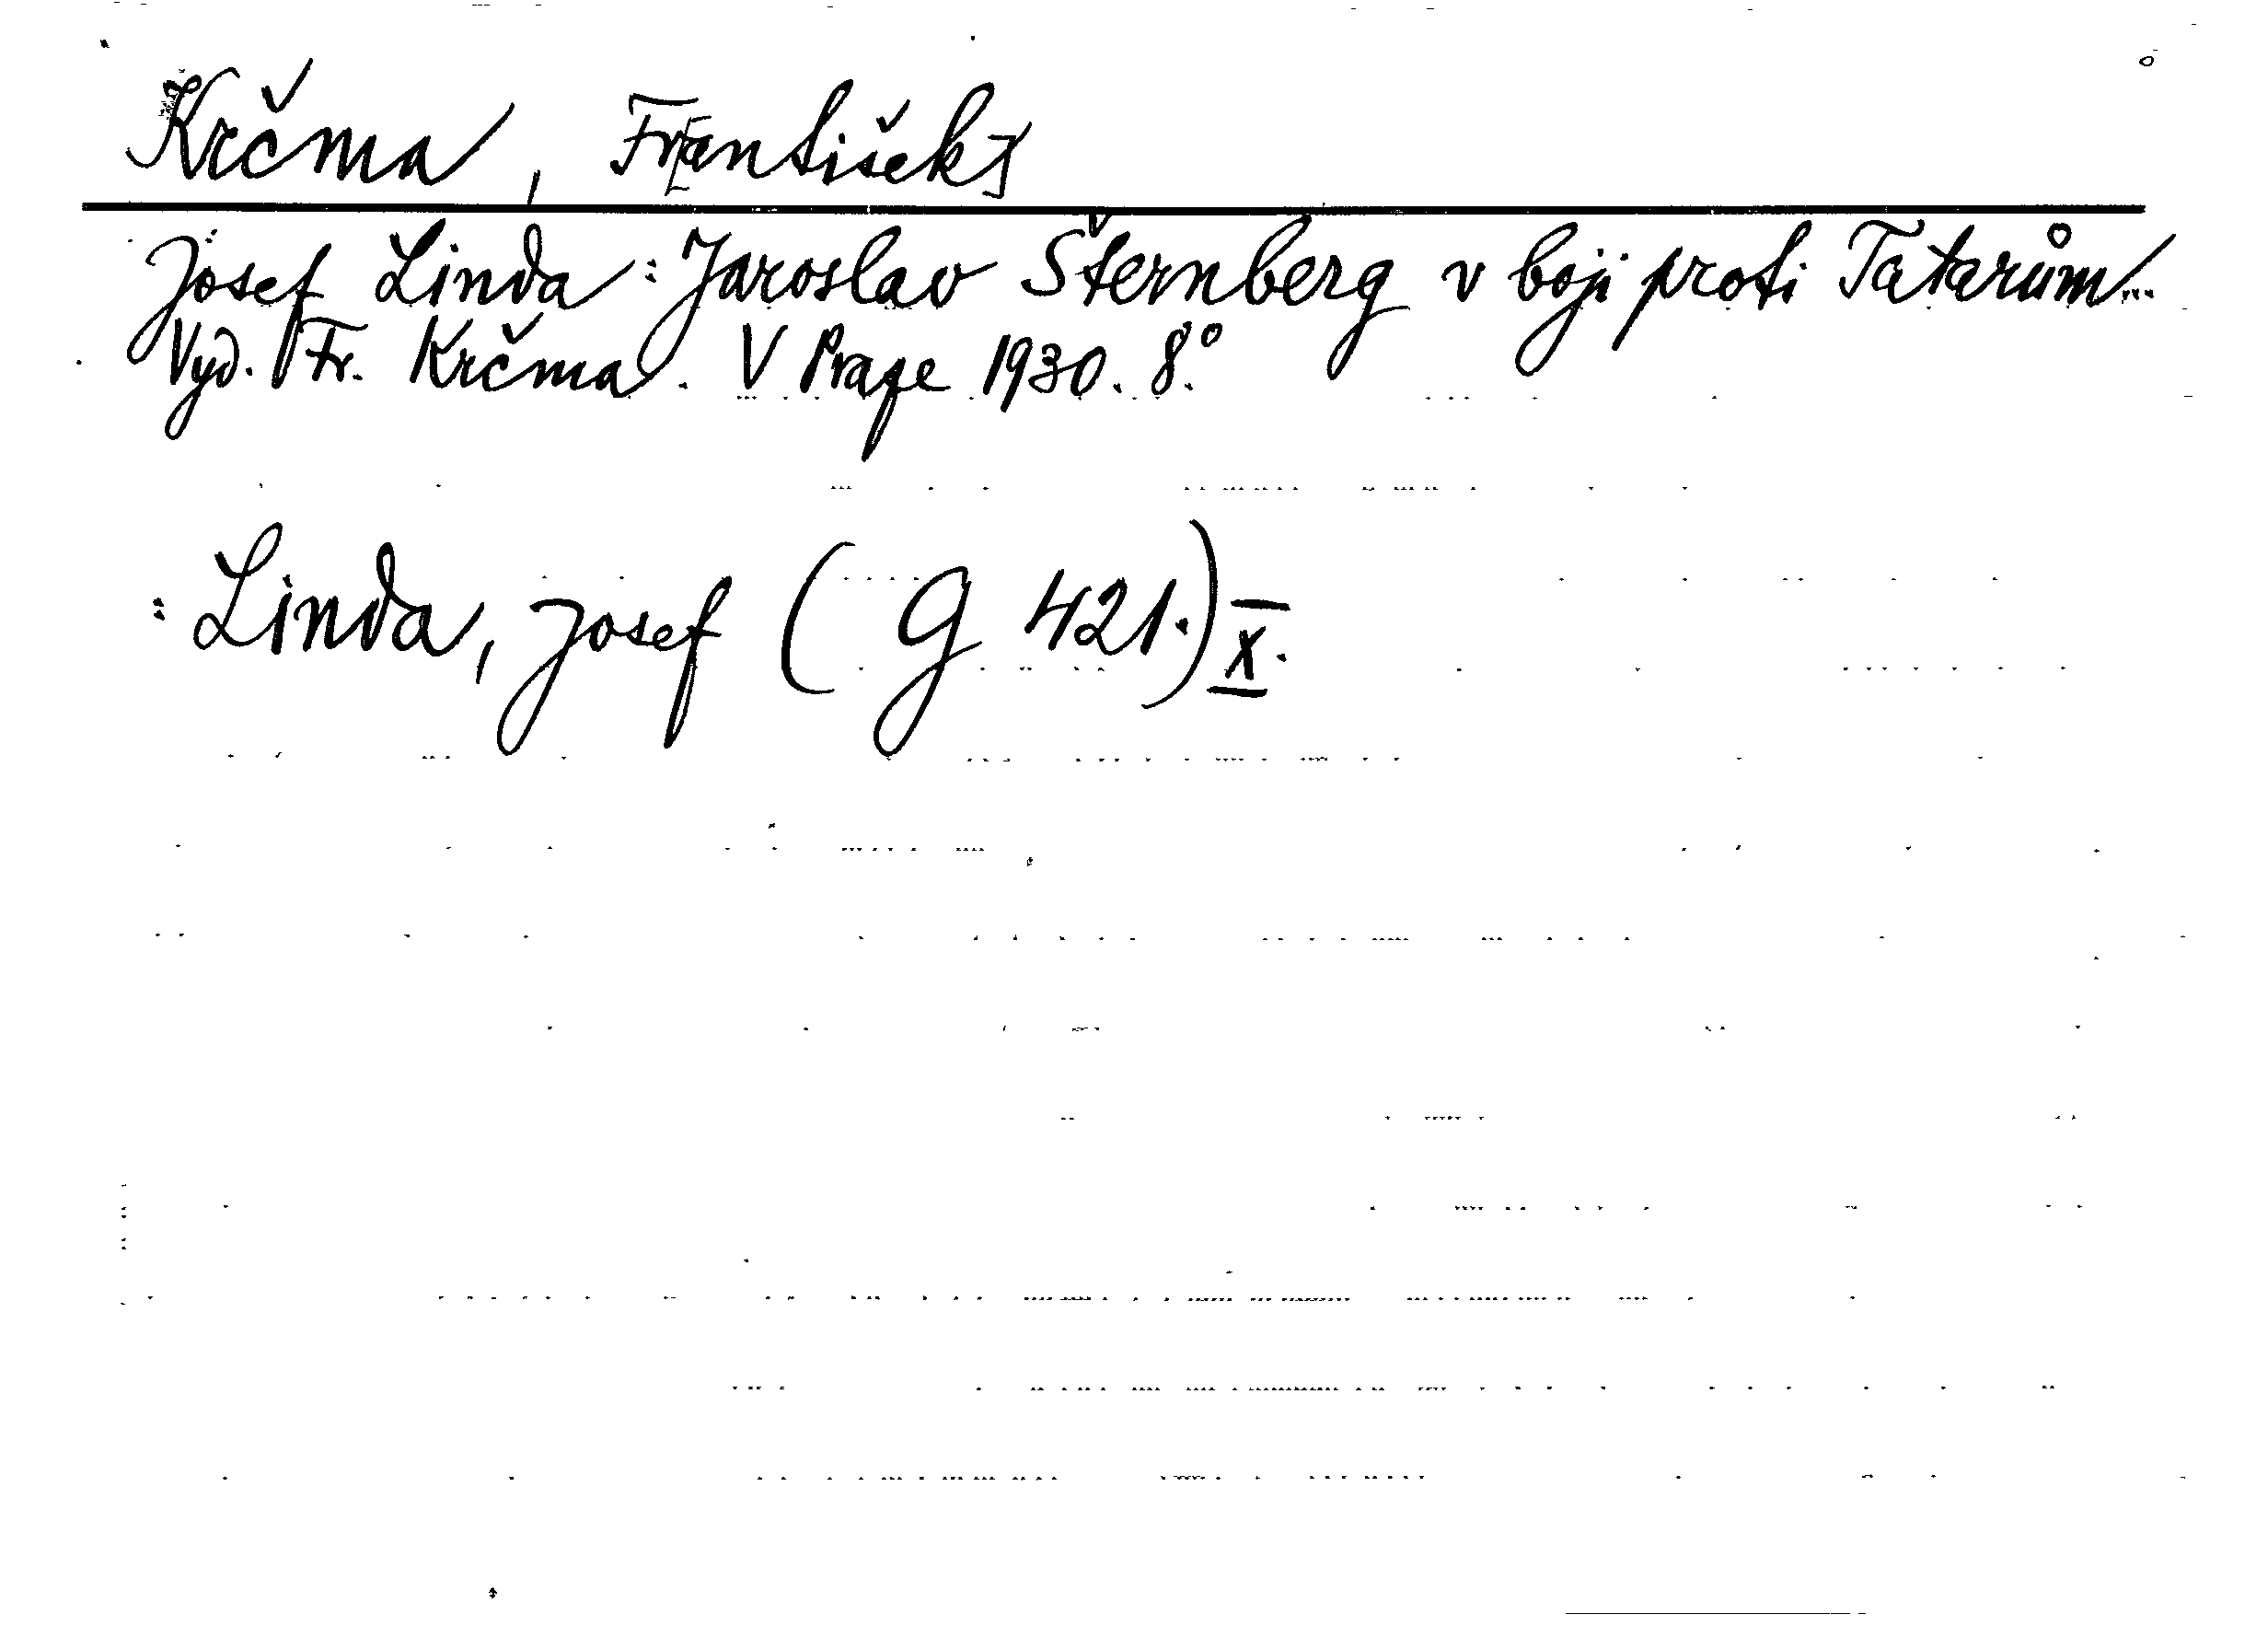 Krčma, Fr[antišek]
Josef Linda: Jaroslav Šternberg v boji proti Tatarům...
Vyd. Fr. Krčma. V Praze 1930. 8.°
: Linda, Josef (G 421.) X.